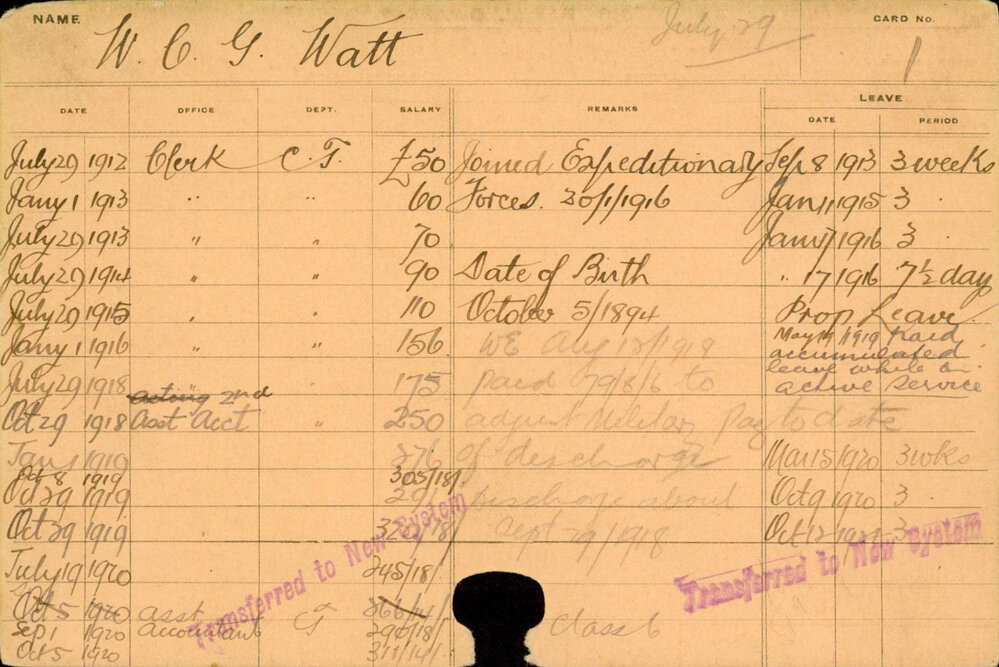 NAME W. C. G. Watt July 29 CARD No. 1
LEAVE
DATE OFFICE DEPT. SALARY REMARKS DATE PERIOD
July 29 1912 Clerk C. T. £50 Joined Expeditionary Sep 8 1913 3 weeks
Jany 1 1913 " " 60 Forces. 20/1/1916 Jan 11 1915 3
July 29 1913 " " 70 1916 3
July 29 1914 " " 90 Date of Birth " 17 1916 7½ day
July 29 1915 " " 110 October 5/1894 Prop Leave
Jany 1 1916 " " 156 WE Aug 1918 May 1919 Paid
accumulated
leave while on
July 29 1918 " " 175 paid 79/8/6 to active Service
acting 2nd
Oct 29 1918 Asst Acct " 250 adjust Military Pay to date
Jan 1 1919 276 of discharge Mar 15/1920 3 wks
Oct 8 1919 305/18/
Oct 29 1919 Discharge about Oct 9 1920 3
Oct 29 1919 Sept 29/1918 Oct 12 3
July 19 1920 345/18/
Oct 5 1920 asst 366/14/
Sep 1 1920 accountant 290/18/ Class 6
Oct 5 1920 311/14/
Transferred to New System
Transferred to New System